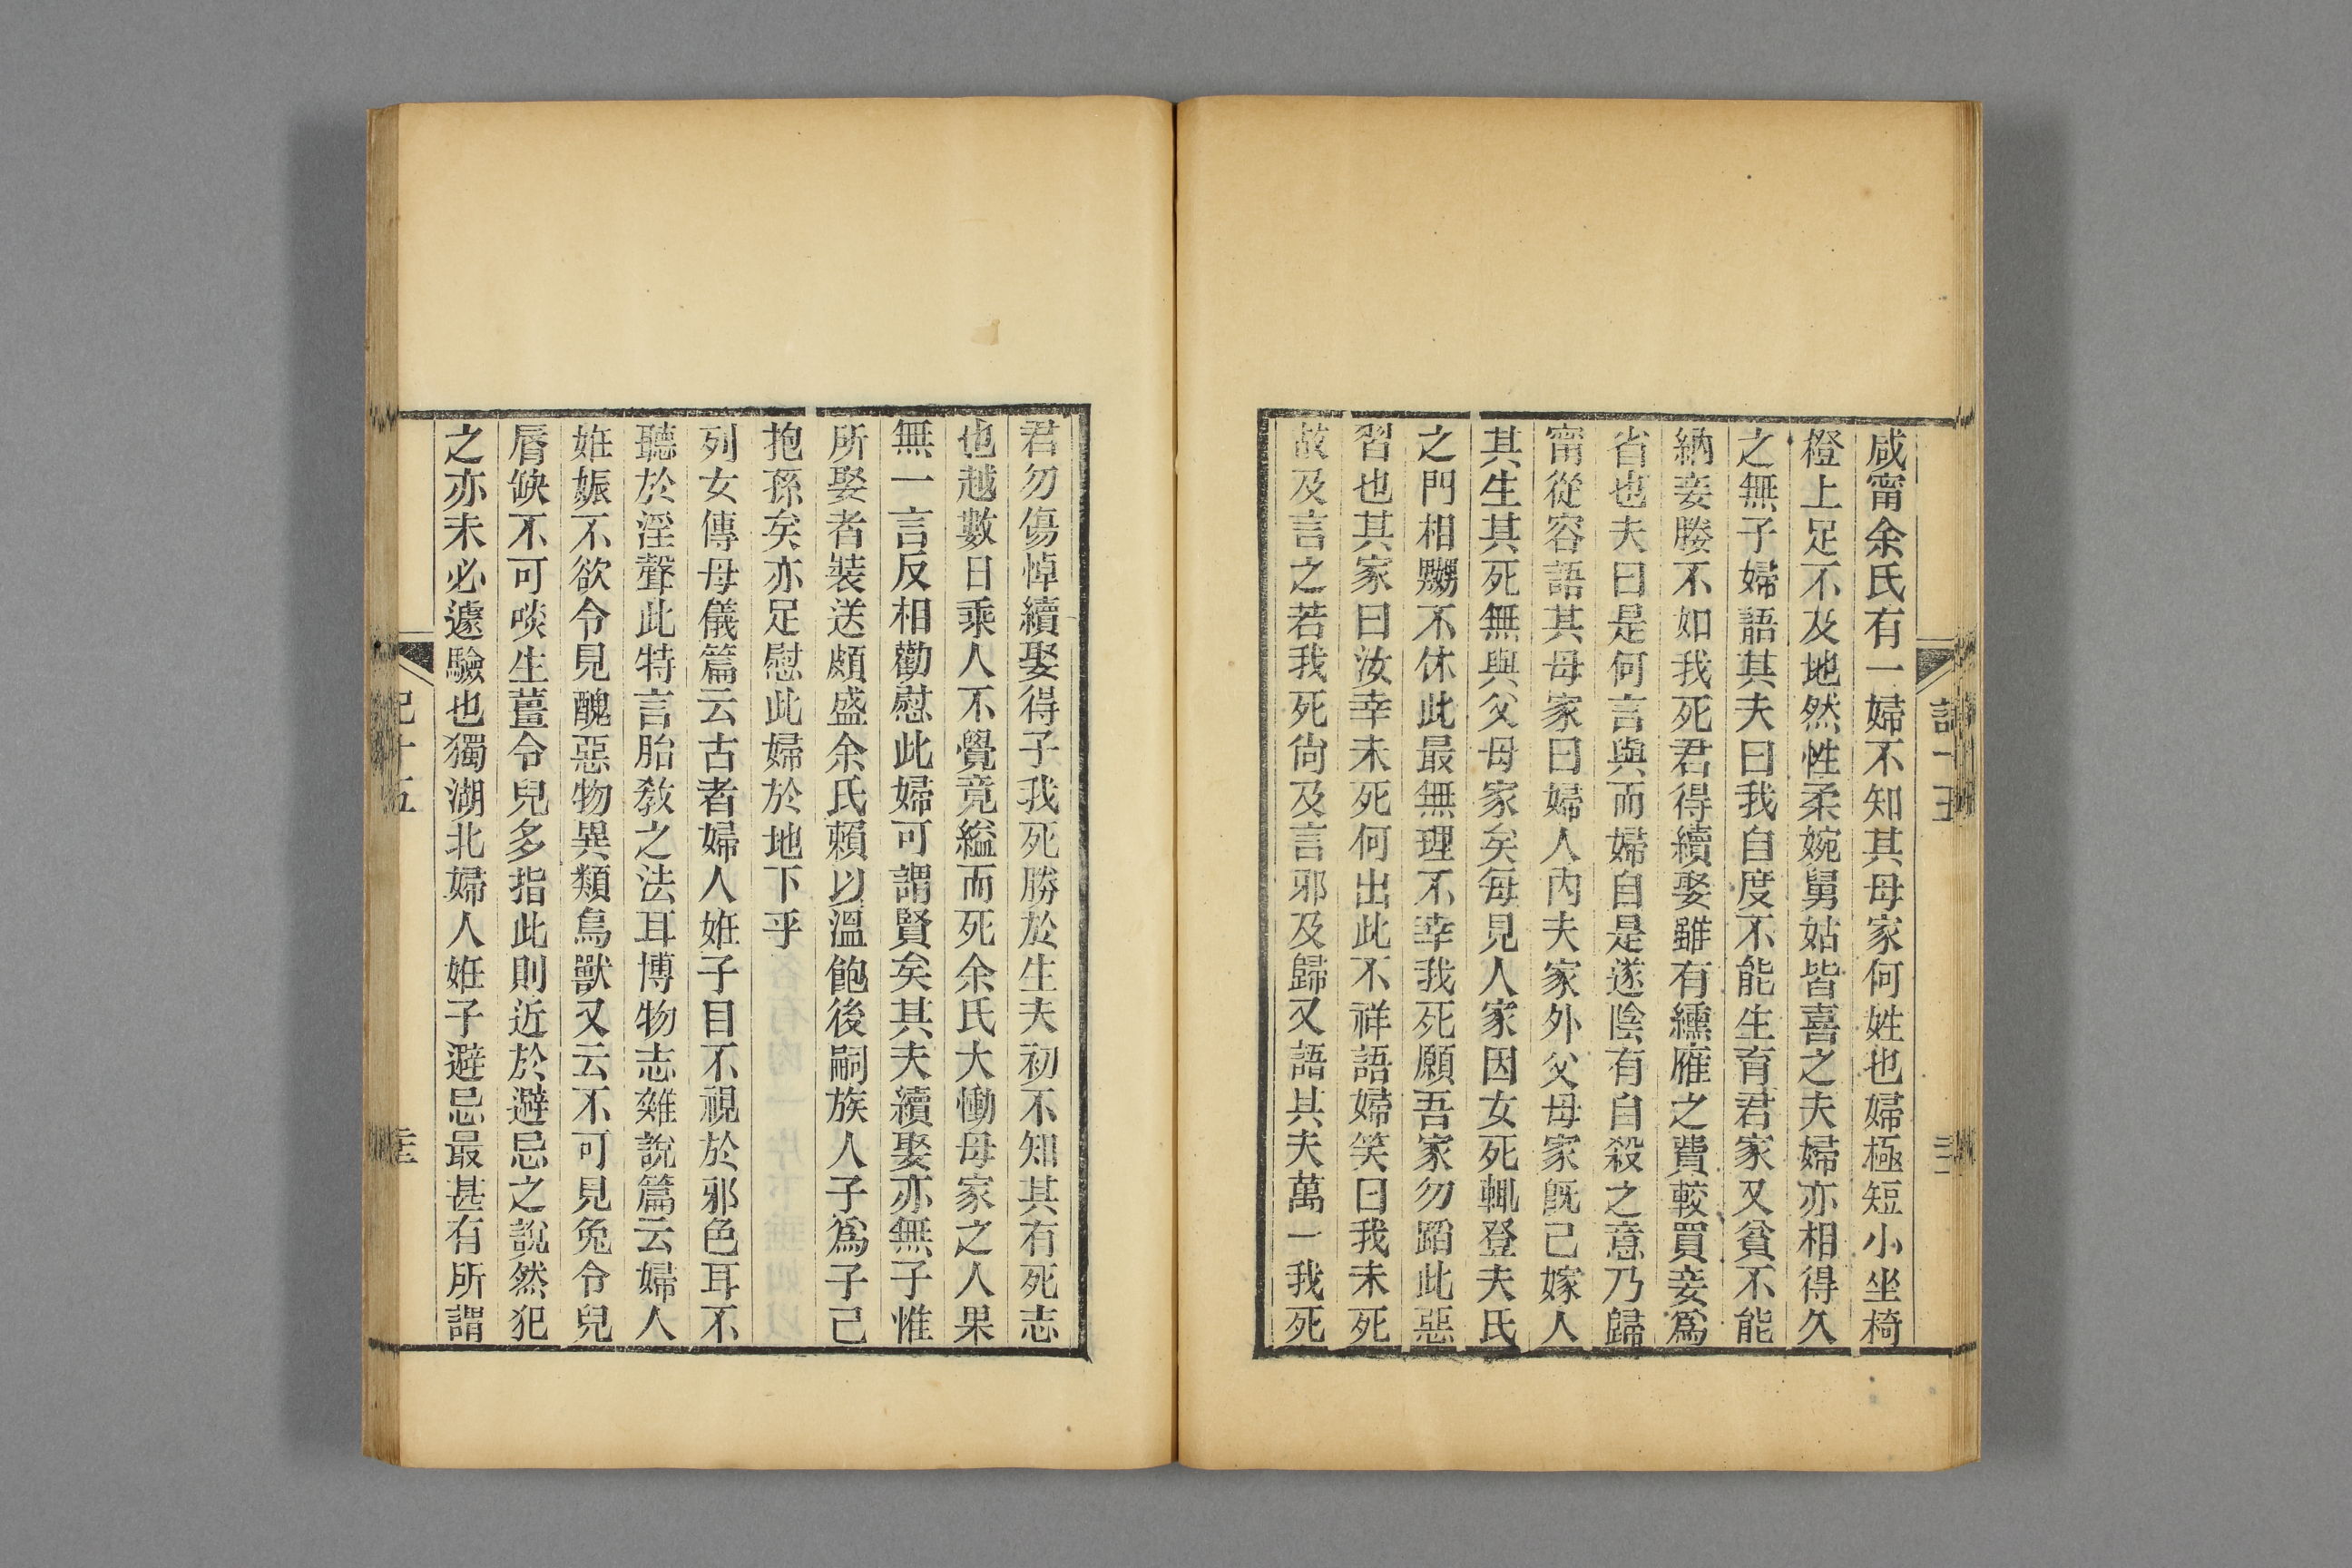 咸甯余氏有一婦不知其母家何姓也婦極短小坐椅
橙上足不及地然性柔婉舅姑皆喜之夫婦亦相得久
之無子婦語其夫曰我自度不能生育君家又貧不能
納妾媵不如我死君得續娶雖有纁雁之費較買妾爲
省也夫曰是何言與而婦自是遂陰有自殺之意乃歸
甯從容語其母家曰婦人內夫家外父母家旣已嫁人
其生其死無與父母家矣每見人家因女死輒登夫氏
之門相嬲不休此最無理不幸我死願吾家勿蹈此惡
習也其家曰汝幸未死何出此不祥語婦笑曰我未死
故及言之若我死尙及言邪及歸又語其夫萬一我死
君勿傷悼續娶得子我死勝於生夫初不知其有死志
也越數日乘人不覺竟縊而死余氏大慟母家之人果
無一言反相勸慰此婦可謂賢矣其夫續娶亦無子惟
所娶者裝送頗盛余氏賴以溫飽後嗣族人子爲子己
抱孫矣亦足慰此婦於地下乎
列女傳母儀篇云古者婦人姙子目不視於邪色耳不
聽於淫聲此特言胎敎之法耳博物志雜說篇云婦人
姙娠不欲令見醜惡物異類鳥獸又云不可見兔令兒
脣缺不可啖生薑令兒多指此則近於避忌之說然犯
之亦未必遽驗也獨湖北婦人姙子避忌最甚有所謂